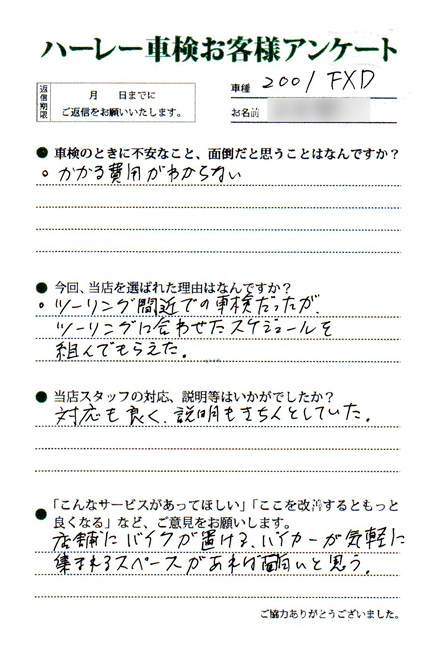 ハーレー車検お客様アンケート
返信期限
月 日までに
ご返信をお願いいたします。
車種 2001 FXD
お名前
● 車検のときに不安なこと、面倒だと思うことはなんですか？
○ かかる費用がわからない
● 今回、当店を選ばれた理由はなんですか？
○ ツーリング間近での車検だったが、
ツーリングに合わせたスケジュールを
組んでもらえた。
● 当店スタッフの対応、説明等はいかがでしたか？
対応も良く、説明もきちんとしていた。
● 「こんなサービスがあってほしい」「ここを改善するともっと
良くなる」など、ご意見をお願いします。
店舗にバイクが置ける、バイカーが気軽に
集まれるスペースがあれば面白いと思う。
ご協力ありがとうございました。